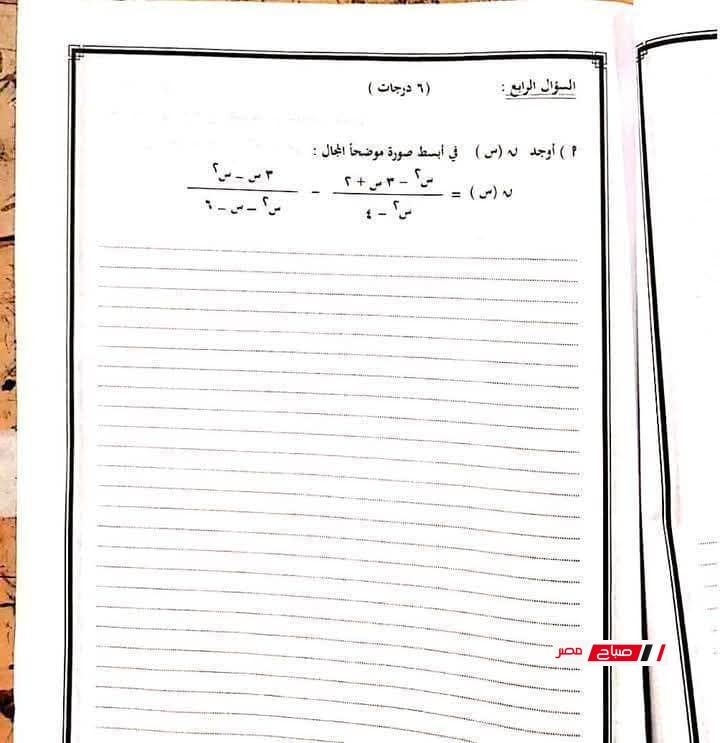 السؤال الرابع : ( ٦ درجات )
٢ ) أوجد ن (س) في أبسط صورة موضحاً المجال :
ن (س) = (س٢ – ٣ س + ٢) / (س٢ – ٤) – (٣ س – س٢) / (س٢ – س – ٦)
صباح مصر